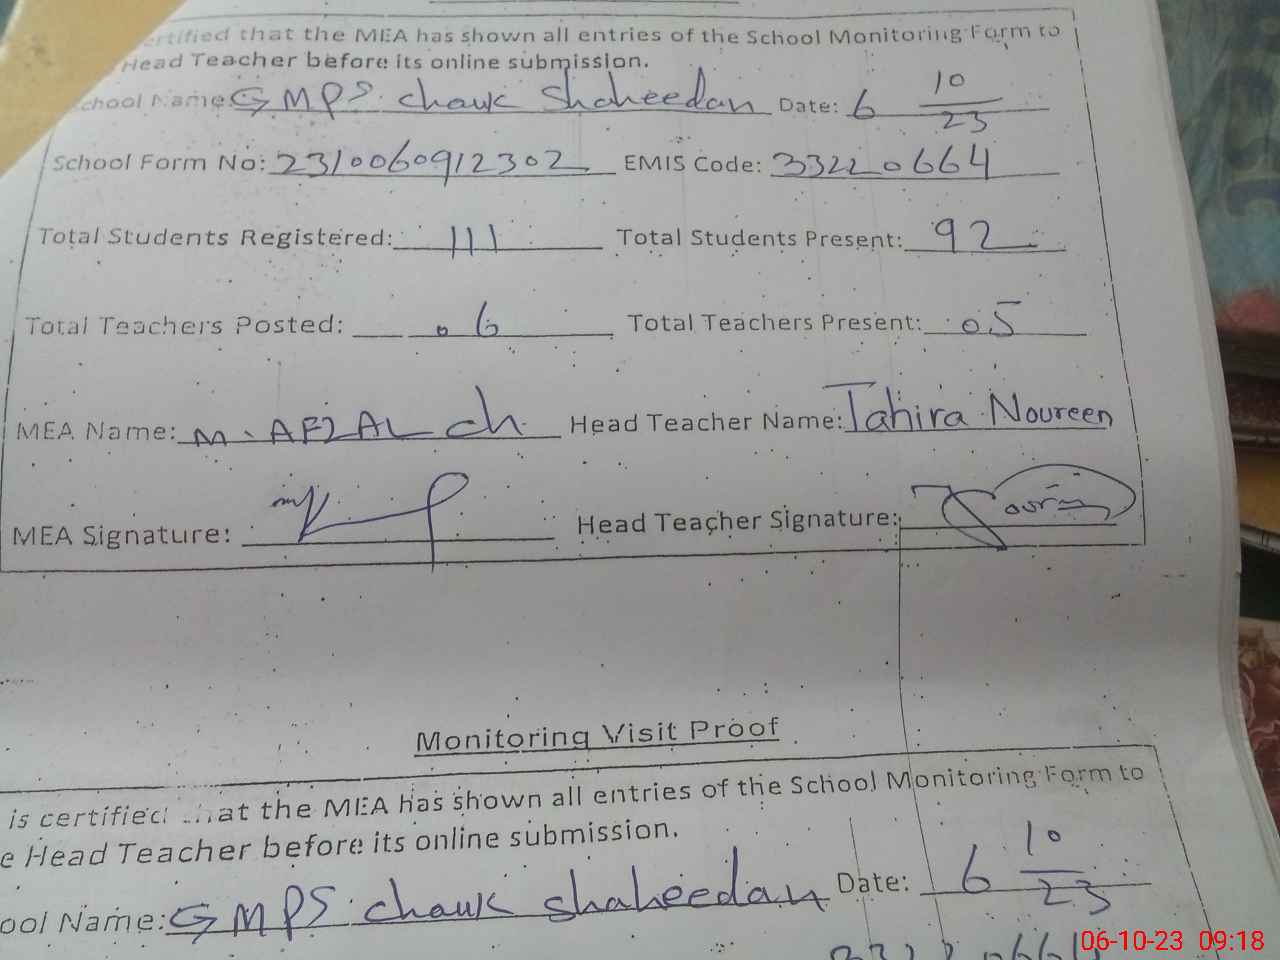 ertified that the MEA has shown all entries of the School Monitoring Form to
Head Teacher before its online submission.
chool Name: GMPS chauk Shaheedan Date: 6 10/23
School Form No: 2310060912302 EMIS Code: 33220664
Total Students Registered: 111 Total Students Present: 92
Total Teachers Posted: 06 Total Teachers Present: 05
MEA Name: M. AFZAL ch Head Teacher Name: Tahira Noureen
MEA Signature: Head Teacher Signature:
Monitoring Visit Proof
is certified that the MEA has shown all entries of the School Monitoring Form to
e Head Teacher before its online submission.
ool Name: GMPS chauk shaheedan Date: 6 10/23
06-10-23 09:18